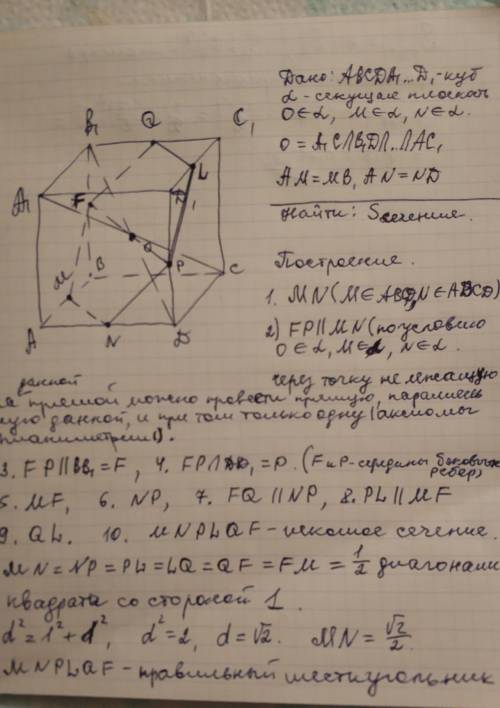 Дано: ABCDA₁...D₁-куб
α - секущая плоскость
O∈α, M∈α, N∈α.
O = A₁C∩B₁D∩..∩AC₁
AM=MB, AN=ND
Найти: Sсечение.
B₁ Q C₁
A₁ F D₁ L
O P
M B C
A N D
Построение.
1. MN (M∈ABCD, N∈ABCD)
2) FP∥MN (по условию
O∈α, M∈α, N∈α.
через точку не лежащую
на данной прямой можно провести прямую, параллель
ную данной, и при том только одну (аксиома
планиметрии)).
3. FP∥BB₁=F, 4. FP∩DD₁=P. (F и P-середины боковых
ребер)
5. MF, 6. NP, 7. FQ∥NP, 8. PL∥MF
9. QL. 10. MNPLQF-искомое сечение.
MN=NP=PL=LQ=QF=FM=1/2 диагонали
квадрата со стороной 1.
d²=1²+d², d²=2, d=√2. MN=√2/2.
MNPLQF-правильный шестиугольник